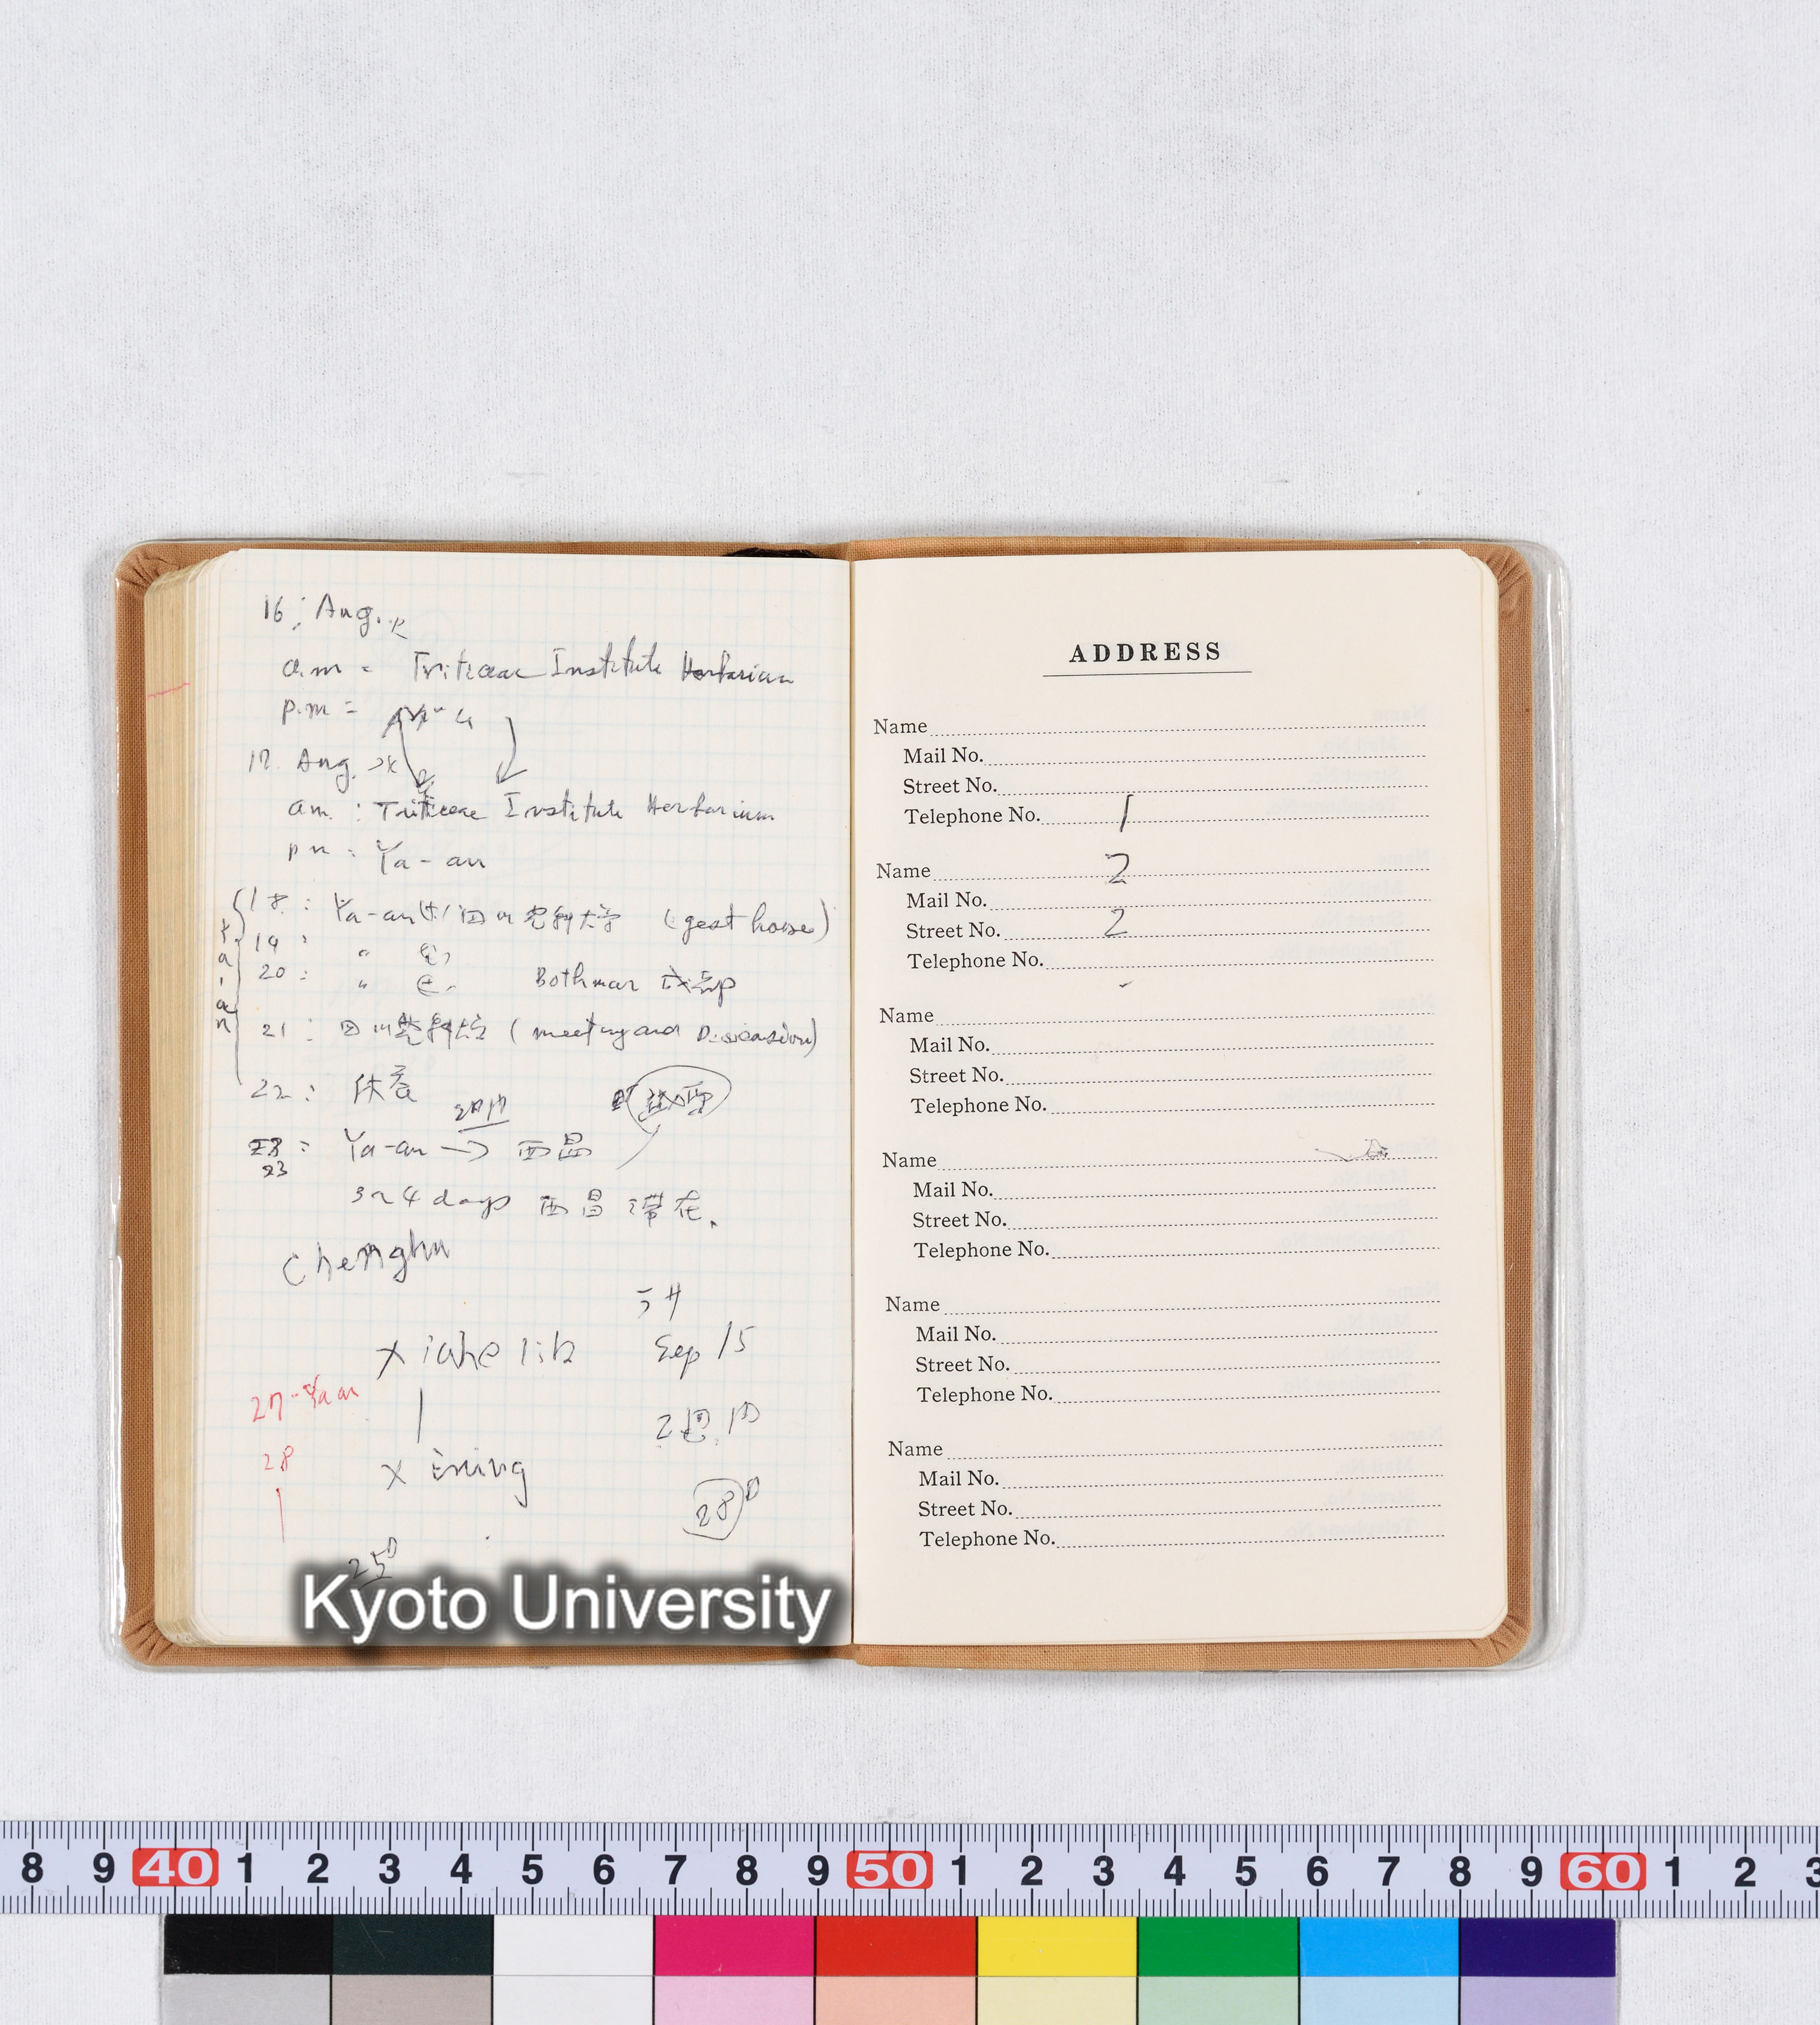 16; Aug. 火
a.m = Triticeae Institute Herbarium
p.m =
17. Aug. 水
am. : Triticeae Institute Herbarium
pm : Ya-an
Ya-an
18. : Ya-an 四川農科大学 (gest house)
19 : 〃
20 : 〃 Bothmar
21 : 四川農科大学 ( meeting and Discussion)
22 :
23
Ya-an → 西昌
3~4 days 西昌 滞在.
Chenghu
Sep 15
27-Yaan
2週間
28
Xining
28日
25日
Kyoto University
ADDRESS
Name
Mail No.
Street No.
Telephone No. 1
Name 2
Mail No.
Street No. 2
Telephone No.
Name
Mail No.
Street No.
Telephone No.
Name
Mail No.
Street No.
Telephone No.
Name
Mail No.
Street No.
Telephone No.
Name
Mail No.
Street No.
Telephone No.
8 9 40 1 2 3 4 5 6 7 8 9 50 1 2 3 4 5 6 7 8 9 60 1 2 3